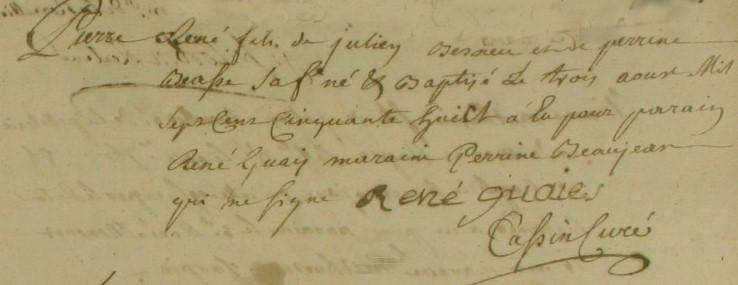 Pierre René fils de julien Besneu et de perrine
Beasse sa f. né & Baptisé Le trois aoust Mil
sept Cent Cinquante huict à Eu pour parain
René Guais maraine Perrine Beaujean
qui ne signe René guaies
Cassin Curé